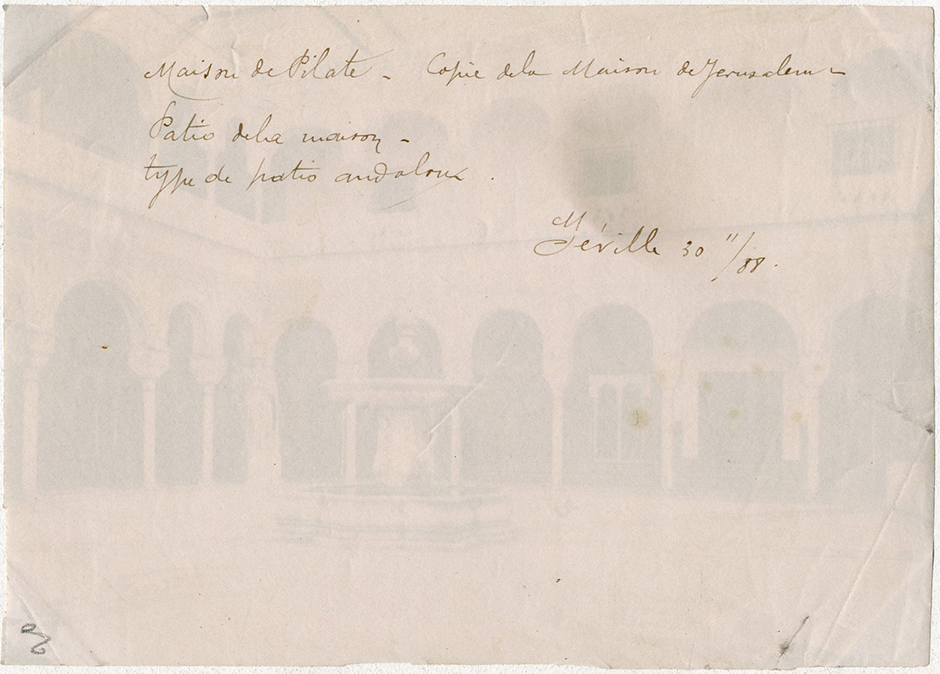 Maison de Pilate - Copie de la Maison de Jerusalem -
Patio de la maison -
type de patio andaloux.
Séville 30 11/88.